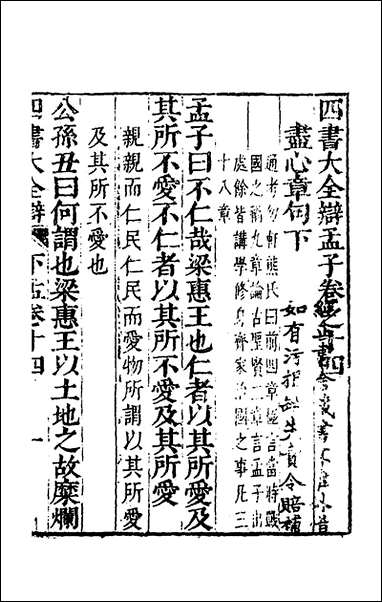 四書大全辯孟子卷之十四
盡心章句下
如有污損缺失責令賠補
通考勿軒熊氏曰前四章極言當時戰
國之禍九章論古聖賢二章言孟子出
處餘皆講學修身齊家治國之事凡三
十八章
孟子曰不仁哉梁惠王也仁者以其所愛及
其所不愛不仁者以其所不愛及其所愛
親親而仁民仁民而愛物所謂以其所愛
及其所不愛也
公孫丑曰何謂也梁惠王以土地之故糜爛
四書大全辯 下孟卷十四 一